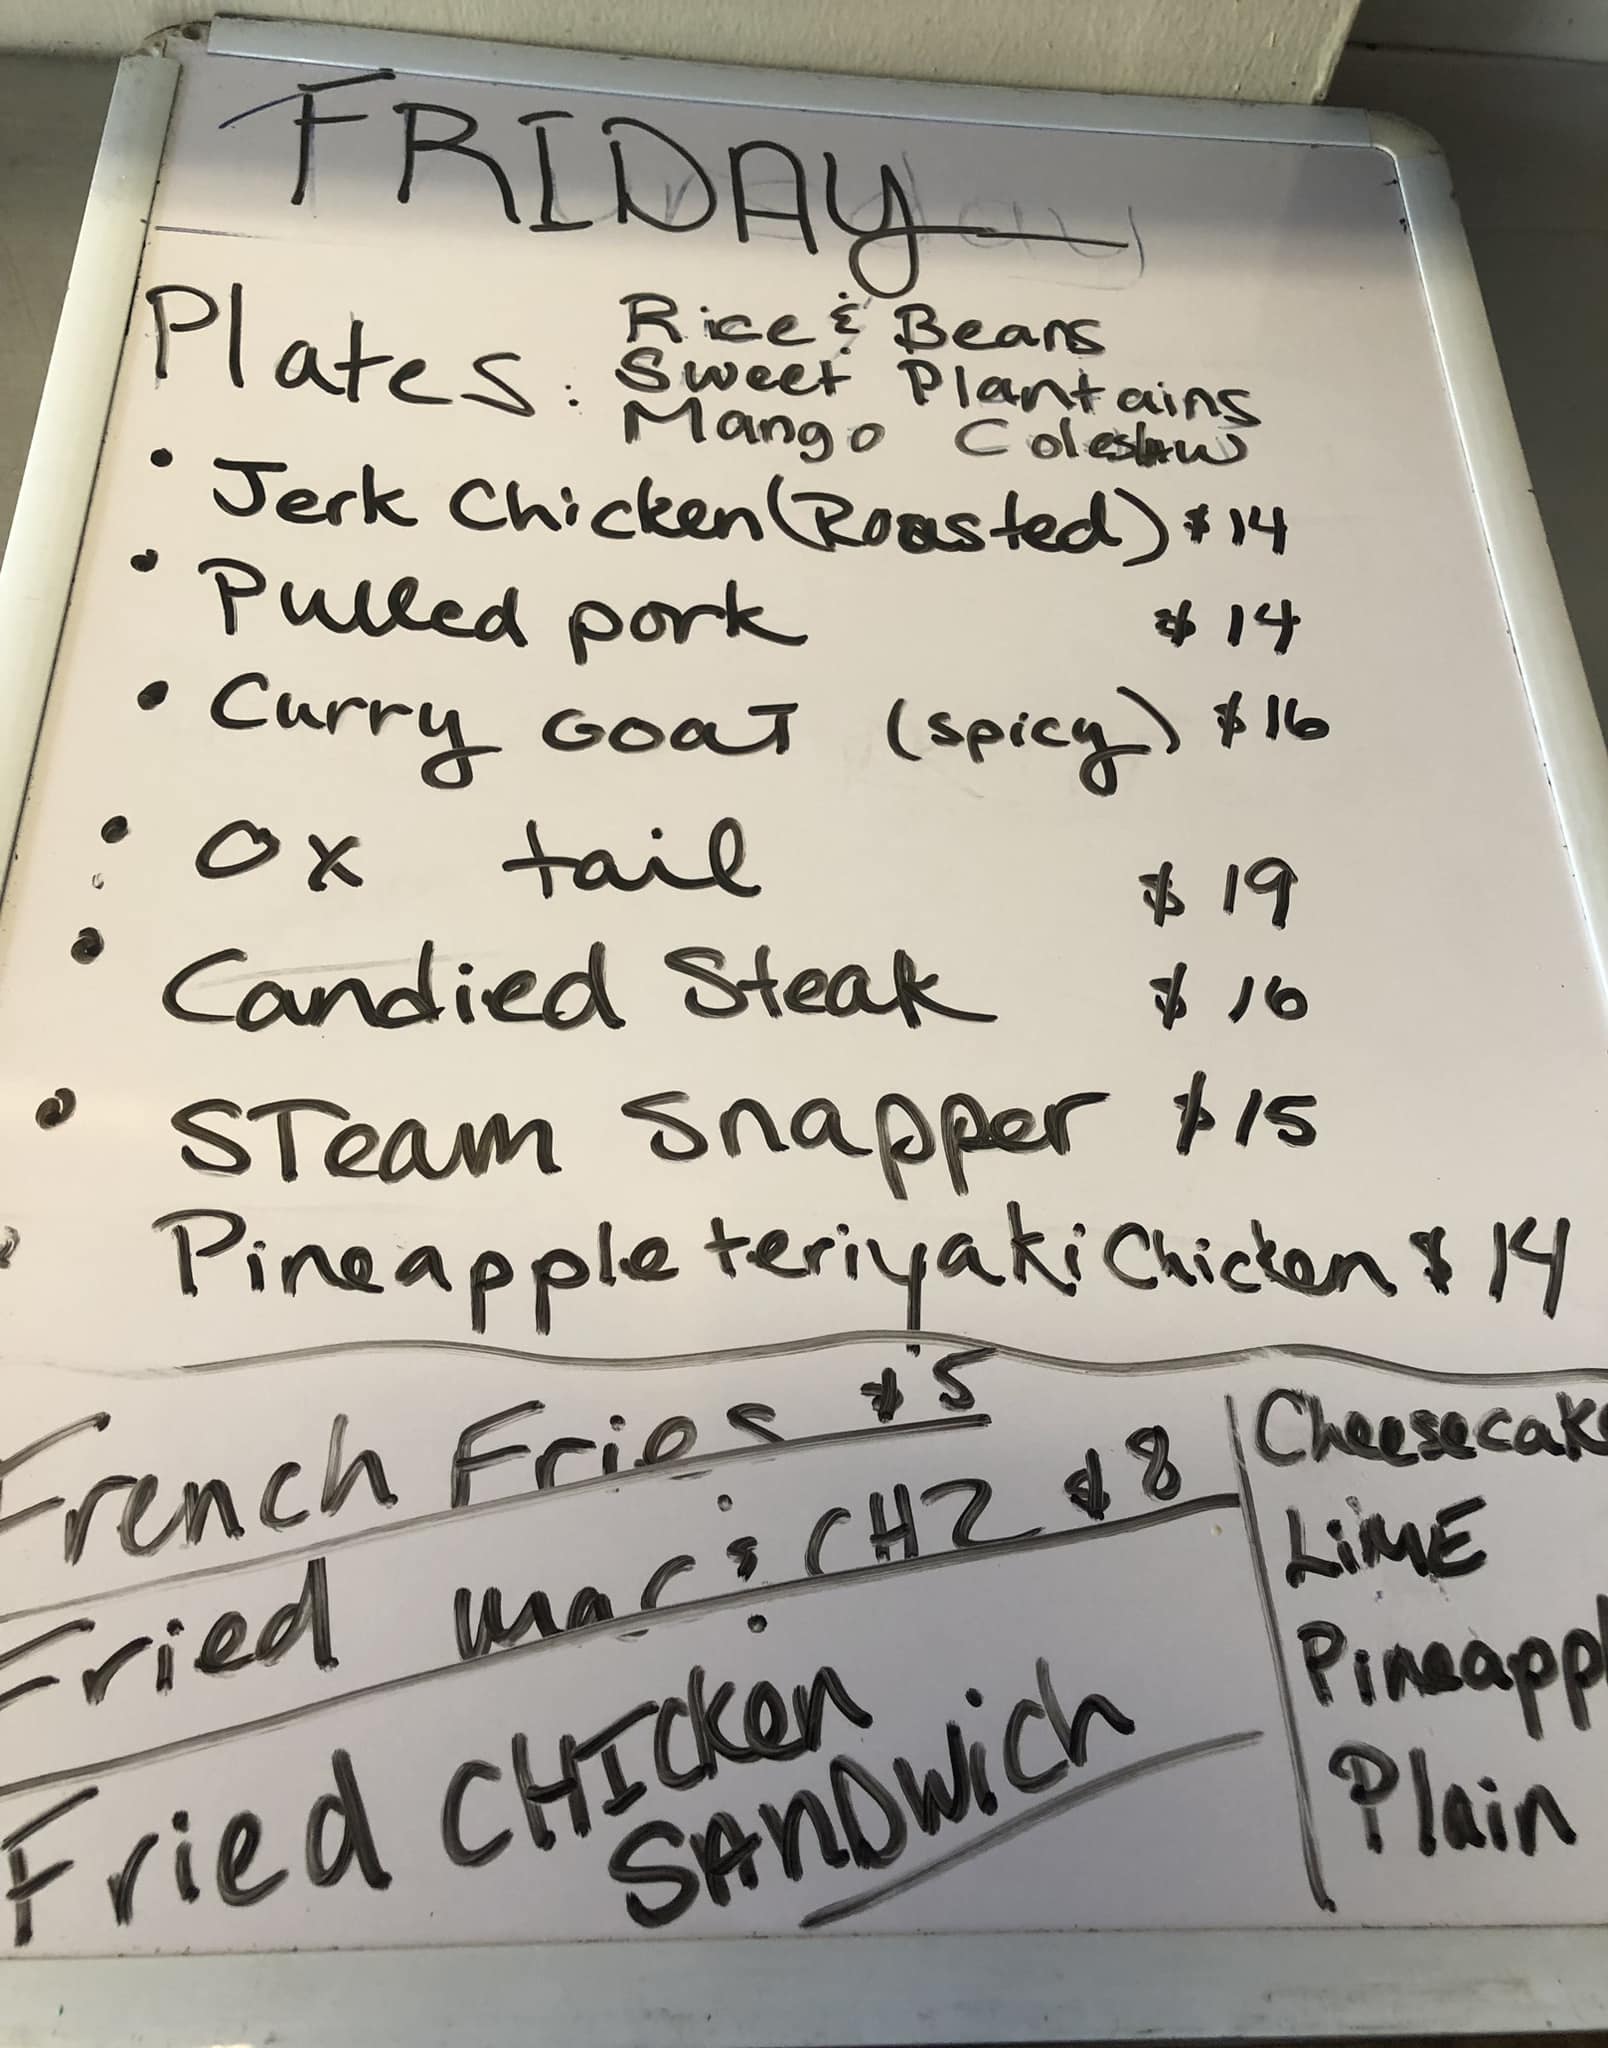 FRIDAY
Plates: Rice & Beans
Sweet Plantains
Mango Coleslaw
• Jerk Chicken (Roasted) $14
• Pulled pork $14
• Curry GOAT (spicy) $16
• Ox tail $19
• Candied Steak $16
• STeam Snapper $15
• Pineapple teriyaki Chicken $14
French Fries $5
Fried mac & CHZ $8
Fried CHICken
SANDwich
Cheesecake
LiME
Pineappl
Plain